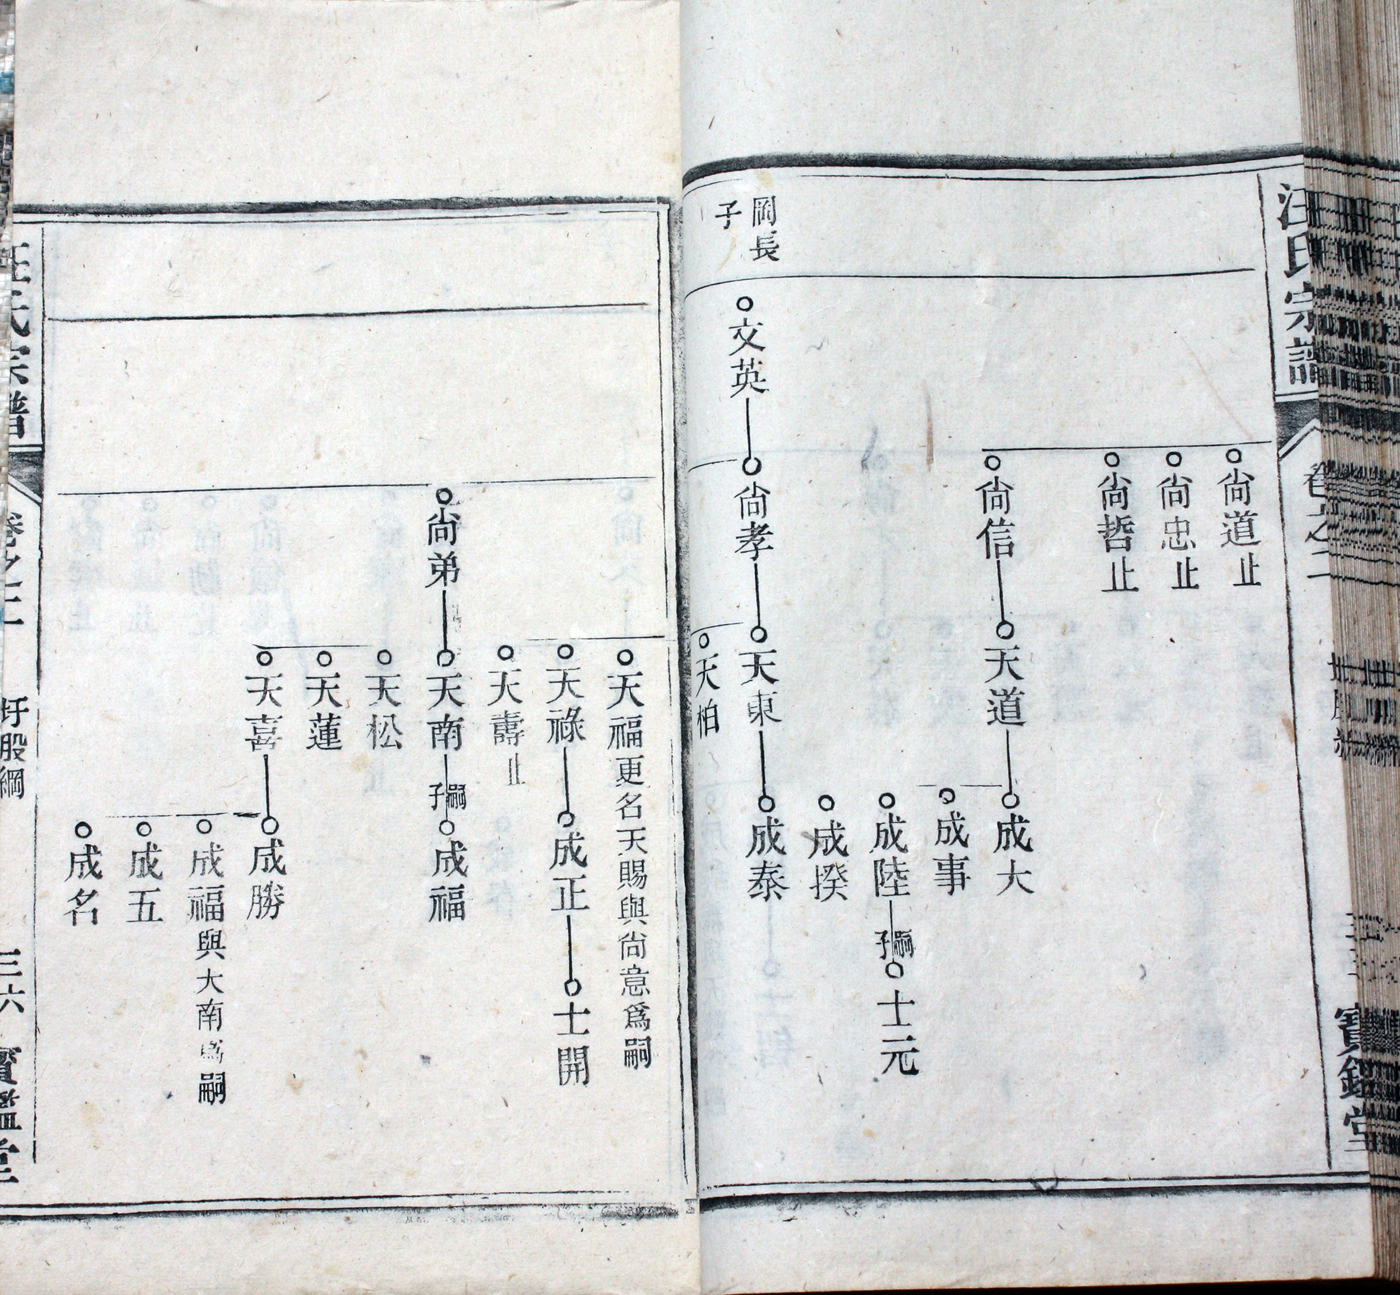 汪氏宗譜
卷之二
寶鑑堂
尚道止
尚忠止
尚哲止
尚信
天道
成大
成事
成陸
嗣子
士元
成揆
岡長子
文英
尚孝
天東
成泰
天柏
天福更名天賜與尚意爲嗣
天祿
成正
士開
天壽止
尚弟
天南
嗣子
成福
天松
天蓮
天喜
成勝
成福與大南爲嗣
成五
成名
汪氏宗譜
卷之二
圩股綱
三六
寶鑑堂